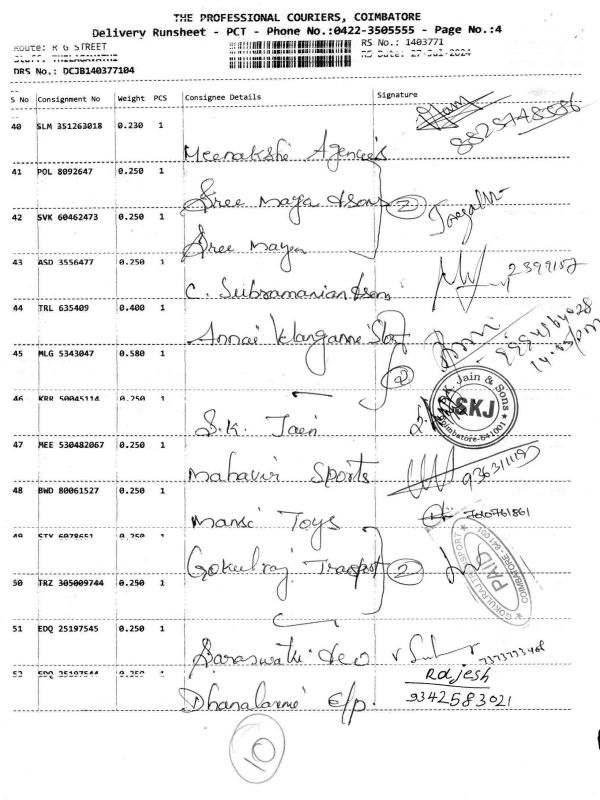 THE PROFESSIONAL COURIERS, COIMBATORE
Delivery Runsheet - PCT - Phone No.:0422-3505555 - Page No.:4
Route: R G STREET RS No.: 1403771
Staff: THILAGAVATHI RS Date: 27-Jul-2024
DRS No.: DCJB140377104
S No Consignment No Weight PCS Consignee Details Signature
40 SLM 351263018 0.230 1 Meenakshi Agencies
41 POL 8092647 0.250 1 Sree Maya & Sons 2
42 SVK 60462473 0.250 1 Sree Maya
43 ASD 3556477 0.250 1 C. Subramanian & sons 2399157
44 TRL 635409 0.400 1 Annai
45 MLG 5343047 0.580 1 2
46 KRR 50045114 0.250 1 S.K. Jain
S.K. Jain & Sons
SKJ
Coimbatore-641001
47 MEE 530482067 0.250 1 Mahavir Sports
48 BWD 80061527 0.250 1 Mansi Toys
49 STY 6078651 0.250 1 Gokulraj Transport 2
GOKULRAJ TRANSPORT
PAID
COIMBATORE-641 001
50 TRZ 305009744 0.250 1
51 EDQ 25197545 0.250 1 Saraswathi & co
52 EDQ 25197544 0.250 1 Dhanalaxmi E/p. Rajesh
9342583021
10